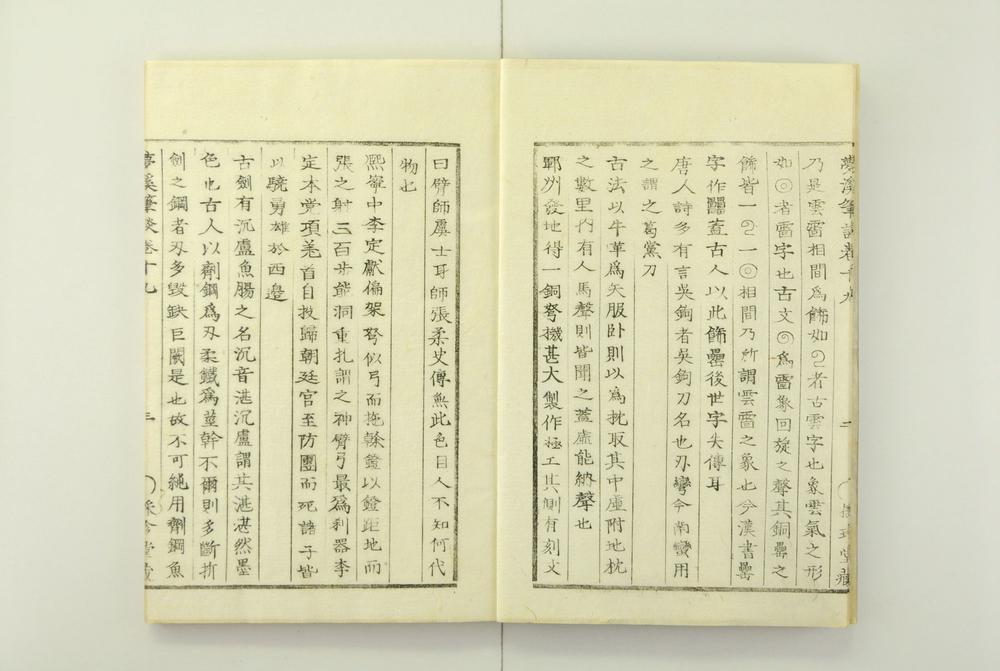 夢溪筆談卷十九 二
乃是雲雷相間爲飾如者古雲字也象雲氣之形
如◎者雷字也古文爲雷象回旋之聲其銅罍之
飾皆一一◎相間乃所謂雲雷之象也今漢書罍
字作䨻蓋古人以此飾罍後世字失傳耳
唐人詩多有言吳鉤者吳鉤刀名也刃彎今南蠻用
之謂之葛黨刀
古法以牛革爲矢服卧則以爲枕取其中虛附地枕
之數里內有人馬聲則皆聞之蓋虛能納聲也
鄆州發地得一銅弩機甚大製作極工其側有刻文
曰臂師虞士耳師張柔史傳無此色目人不知何代
物也
熙寧中李定獻偏架弩似弓而施榦鐙以鐙距地而
張之射三百步能洞重扎謂之神臂弓最爲利器李
定本党項羌酋自投歸朝廷官至防團而死諸子皆
以驍勇雄於西邊
古劍有沉盧魚腸之名沉音湛沉盧謂其湛湛然黑
色也古人以劑鋼爲刃柔鐵爲莖幹不爾則多斷折
劍之鋼者刃多毀缺巨闕是也故不可純用劑鋼魚
夢溪筆談卷十九 三